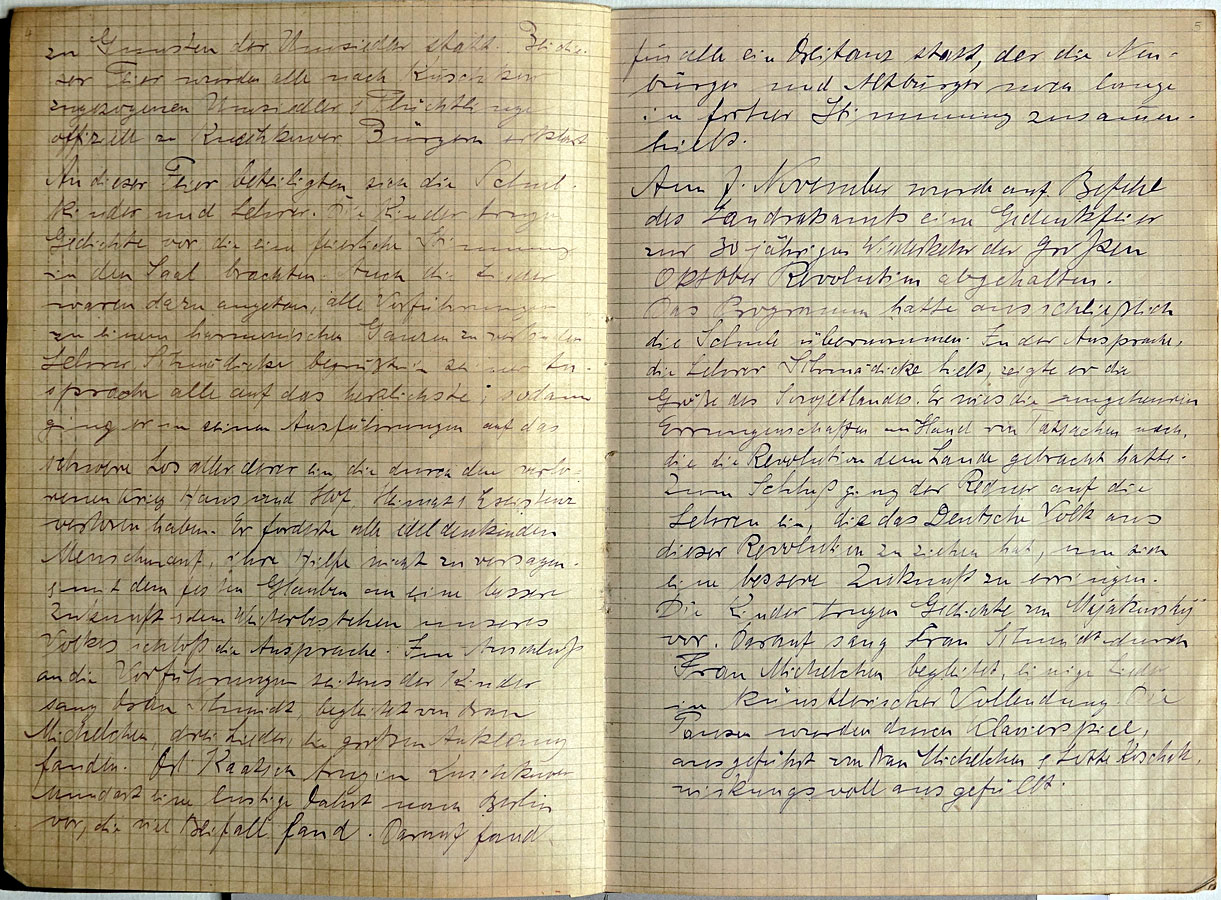 4
zu Gunsten der Umsiedler statt. Bei die-
ser Feier wurden alle nach Kuschkow
zugezogenen Umsiedler & Flüchtlinge
offiziell zu Kuschkower Bürgern erklärt
An dieser Feier beteiligten sich die Schul-
kinder und Lehrer. Die Kinder trugen
Gedichte vor die eine feierliche Stimmung
in den Saal brachten. Auch die Lieder
waren dazu angetan, alle Vorführungen
zu einem harmonischen Ganzen zu verbinden
Lehrer Schmädicke begrüßte in seiner An-
sprache alle auf das herzlichste; sodann
ging er in seinen Ausführungen auf das
schwere Los aller derer ein die durch den verlo-
renen Krieg Haus und Hof, Heimat & Existenz
verloren haben. Er forderte alle edeldenkenden
Menschen auf, ihre Hilfe nicht zu versagen.
mit dem festen Glauben an eine bessere
Zukunft & dem Weiterbestehen unseres
Volkes schloß die Ansprache. Im Anschluß
an die Vorführungen seitens der Kinder
sang Frau Schmidt, begleitet von Frau
Michelchen, drei Lieder, die großen Anklang
fanden. Ort Kaatsch trug in Kuschkower
Mundart eine lustige Fahrt nach Berlin
vor, die viel Beifall fand. Darauf fand
5
für alle ein Freitanz statt, der die Neu-
bürger und Altbürger noch lange
in froher Stimmung zusammen-
hielt.
Am 7. November wurde auf Befehl
des Landratsamts eine Gedenkfeier
zur 30 jährigen Wiederkehr der Großen
Oktober Revolution abgehalten.
Das Programm hatte ausschließlich
die Schule übernommen. In der Ansprache,
die Lehrer Schmädicke hielt, zeigte er die
Größe des Sowjetlandes. Er wies die ungeheuren
Errungenschaften an Hand von Tatsachen nach,
die die Revolution dem Lande gebracht hatte.
Zum Schluß ging der Redner auf die
Lehren ein, die das Deutsche Volk aus
dieser Revolution zu ziehen hat, um sich
eine bessere Zukunft zu erringen.
Die Kinder trugen Gedichte von Majakowskij
vor. Darauf sang Frau Schmidt durch
Frau Michelchen begleitet, einige Lieder
in künstlerischer Vollendung. Die
Pausen wurden durch Klavierspiel,
ausgeführt von Frau Michelchen & Lotte Koschek,
wirkungsvoll ausgefüllt.